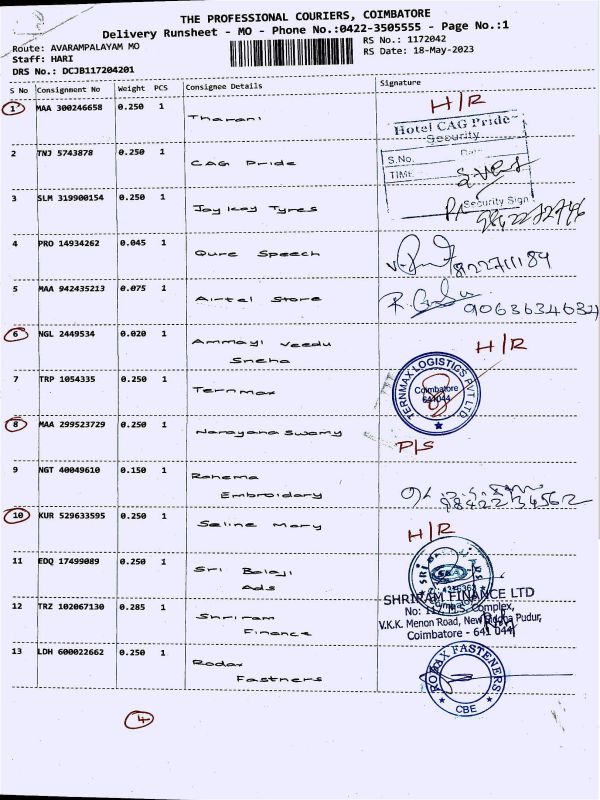 THE PROFESSIONAL COURIERS, COIMBATORE
Delivery Runsheet - MO - Phone No.:0422-3505555 - Page No.:1
Route: AVARAMPALAYAM MO
RS No.: 1172042
Staff: HARI
RS Date: 18-May-2023
DRS No.: DCJB117204201
S No Consignment No Weight PCS Consignee Details Signature
1 MAA 300246658 0.250 1 Tharani H/R
Hotel CAG Pride
Security
2 TNJ 5743878 0.250 1 CAG Pride
S.No.
TIME
3 SLM 319900154 0.250 1 Joy Kay Tyres
Security Sign
4 PRO 14934262 0.045 1 Qure Speech
5 MAA 942435213 0.075 1 Airtel Store
9063634634
6 NGL 2449534 0.020 1 Ammayi Veedu
Sneha
H/R
7 TRP 1054335 0.250 1 Ternmax
TERNMAX LOGISTICS PVT LTD
Coimbatore
641044
8 MAA 299523729 0.250 1 Narayana Swamy
P/S
9 NGT 40049610 0.150 1 Rahema
Embroidary
9842234562
10 KUR 529633595 0.250 1 Seline Mary
H/R
11 EDQ 17499089 0.250 1 Sri Balaji
Ads
12 TRZ 102067130 0.285 1 Shriram
Finance
SHRIRAM FINANCE LTD
No: 117, M.S. Complex,
V.K.K. Menon Road, New Siddha Pudur,
Coimbatore - 641 044
13 LDH 600022662 0.250 1 Rodax
Fastners
RODAX FASTENERS
CBE
4